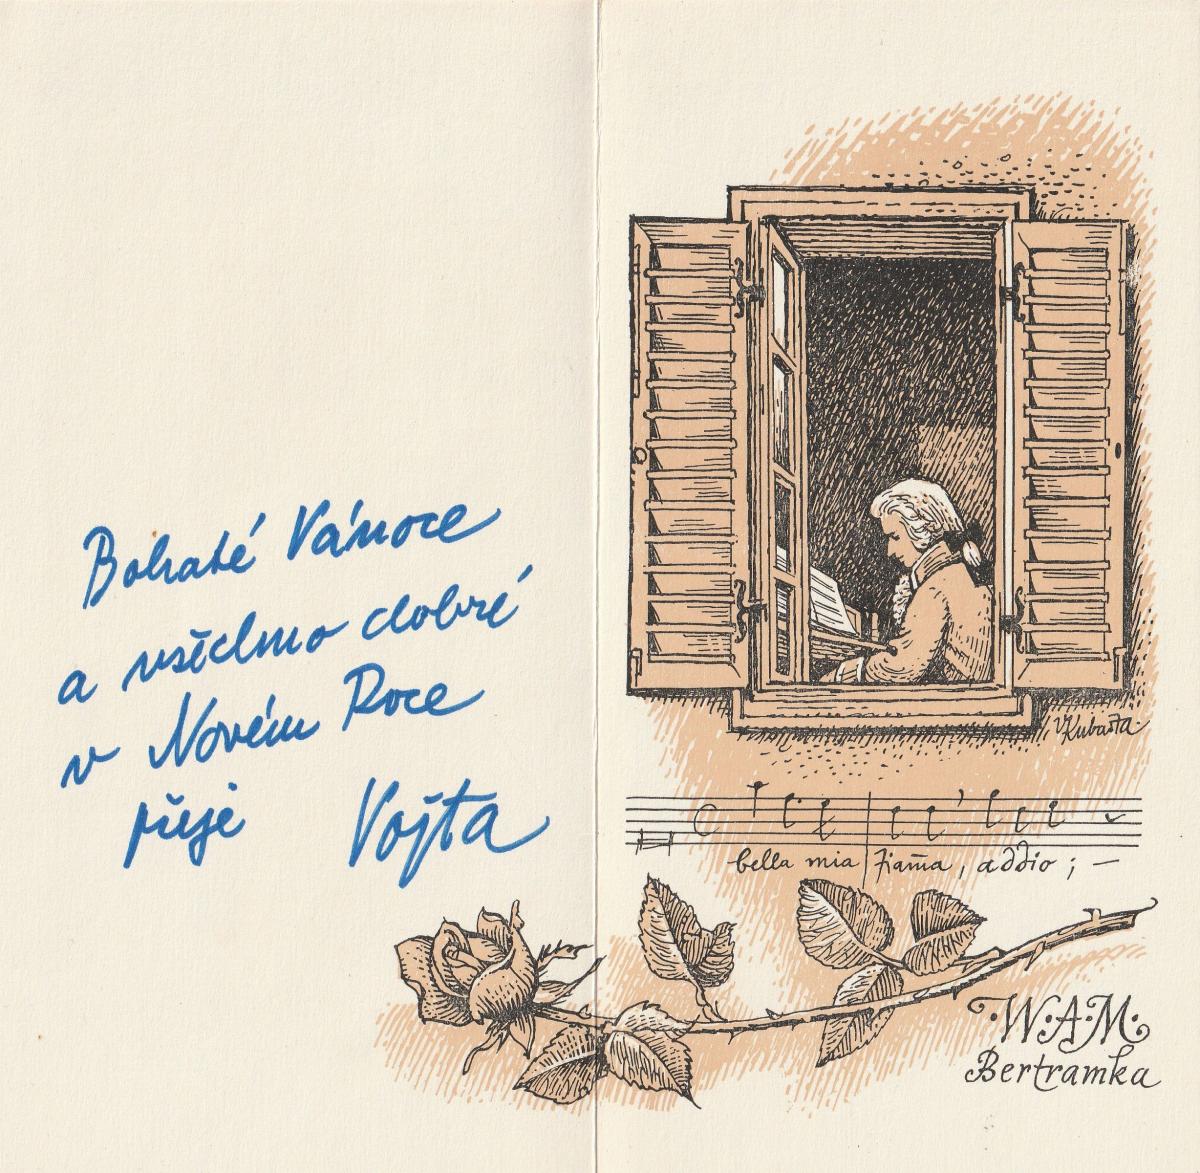 Bohaté Vánoce
a všechno dobré
v Novém Roce
přeje Vojta
V Kubašta
bella mia fiama, addio; –
W·A·M·
Bertramka